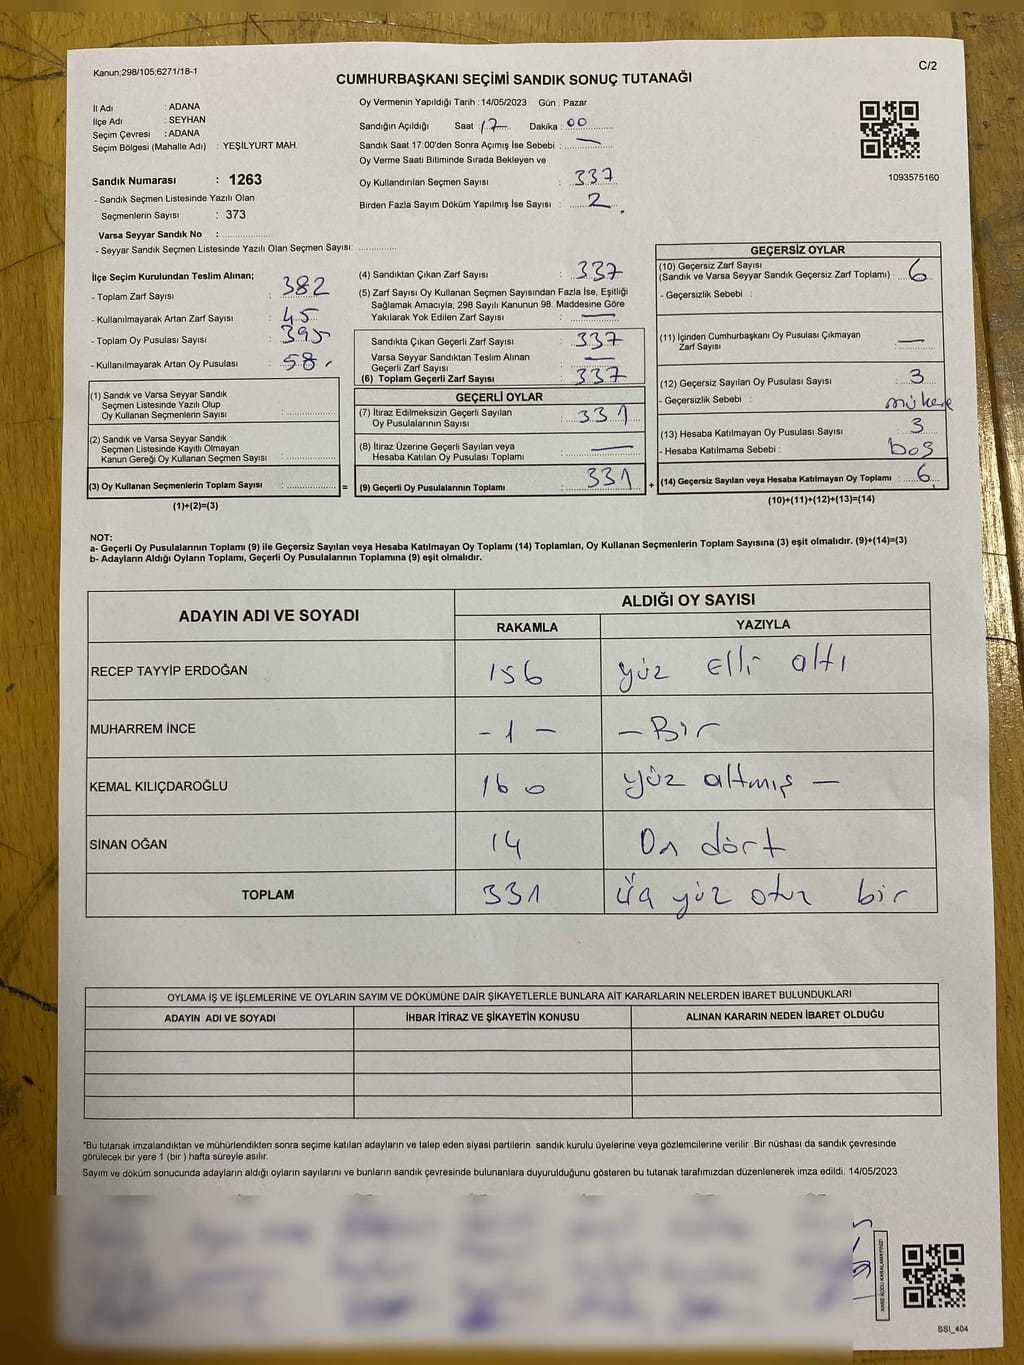 Kanun;298/105;6271/18-1
C/2
CUMHURBAŞKANI SEÇİMİ SANDIK SONUÇ TUTANAĞI
İl Adı : ADANA
İlçe Adı : SEYHAN
Seçim Çevresi : ADANA
Seçim Bölgesi (Mahalle Adı) : YEŞİLYURT MAH.
Sandık Numarası : 1263
- Sandık Seçmen Listesinde Yazılı Olan
Seçmenlerin Sayısı : 373
Varsa Seyyar Sandık No :
- Seyyar Sandık Seçmen Listesinde Yazılı Olan Seçmen Sayısı:
Oy Vermenin Yapıldığı Tarih : 14/05/2023 Gün : Pazar
Sandığın Açıldığı Saat : 17 Dakika : 00
Sandık Saat 17:00'den Sonra Açımış İse Sebebi : —
Oy Verme Saati Bitiminde Sırada Bekleyen ve
Oy Kullandırılan Seçmen Sayısı : 337
Birden Fazla Sayım Döküm Yapılmış İse Sayısı : 2
1093575160
İlçe Seçim Kurulundan Teslim Alınan;
- Toplam Zarf Sayısı : 382
- Kullanılmayarak Artan Zarf Sayısı : 45
- Toplam Oy Pusulası Sayısı : 395
- Kullanılmayarak Artan Oy Pusulası : 58
(1) Sandık ve Varsa Seyyar Sandık
Seçmen Listesinde Yazılı Olup
Oy Kullanan Seçmenlerin Sayısı :
(2) Sandık ve Varsa Seyyar Sandık
Seçmen Listesinde Kayıtlı Olmayan
Kanun Gereği Oy Kullanan Seçmen Sayısı :
(3) Oy Kullanan Seçmenlerin Toplam Sayısı : =
(1)+(2)=(3)
(4) Sandıktan Çıkan Zarf Sayısı : 337
(5) Zarf Sayısı Oy Kullanan Seçmen Sayısından Fazla İse, Eşitliği
Sağlamak Amacıyla; 298 Sayılı Kanunun 98. Maddesine Göre
Yakılarak Yok Edilen Zarf Sayısı : —
Sandıkta Çıkan Geçerli Zarf Sayısı : 337
Varsa Seyyar Sandıktan Teslim Alınan
Geçerli Zarf Sayısı : —
(6) Toplam Geçerli Zarf Sayısı : 337
GEÇERLİ OYLAR
(7) İtiraz Edilmeksizin Geçerli Sayılan
Oy Pusulalarının Sayısı : 331
(8) İtiraz Üzerine Geçerli Sayılan veya
Hesaba Katılan Oy Pusulası Toplamı : —
(9) Geçerli Oy Pusulalarının Toplamı : 331 +
GEÇERSİZ OYLAR
(10) Geçersiz Zarf Sayısı
(Sandık ve Varsa Seyyar Sandık Geçersiz Zarf Toplamı) : 6
- Geçersizlik Sebebi :
(11) İçinden Cumhurbaşkanı Oy Pusulası Çıkmayan
Zarf Sayısı : —
(12) Geçersiz Sayılan Oy Pusulası Sayısı : 3
- Geçersizlik Sebebi :
(13) Hesaba Katılmayan Oy Pusulası Sayısı : 3
- Hesaba Katılmama Sebebi : boş
(14) Geçersiz Sayılan veya Hesaba Katılmayan Oy Toplamı : 6
(10)+(11)+(12)+(13)=(14)
NOT:
a- Geçerli Oy Pusulalarının Toplamı (9) ile Geçersiz Sayılan veya Hesaba Katılmayan Oy Toplamı (14) Toplamları, Oy Kullanan Seçmenlerin Toplam Sayısına (3) eşit olmalıdır. (9)+(14)=(3)
b- Adayların Aldığı Oyların Toplamı, Geçerli Oy Pusulalarının Toplamına (9) eşit olmalıdır.
ADAYIN ADI VE SOYADI ALDIĞI OY SAYISI
RAKAMLA YAZIYLA
RECEP TAYYİP ERDOĞAN 156 yüz Elli altı
MUHARREM İNCE - 1 - - Bir
KEMAL KILIÇDAROĞLU 160 yüz altmış —
SİNAN OĞAN 14 On dört
TOPLAM 331 yüz otuz bir
OYLAMA İŞ VE İŞLEMLERİNE VE OYLARIN SAYIM VE DÖKÜMÜNE DAİR ŞİKAYETLERLE BUNLARA AİT KARARLARIN NELERDEN İBARET BULUNDUKLARI
ADAYIN ADI VE SOYADI İHBAR İTİRAZ VE ŞİKAYETİN KONUSU ALINAN KARARIN NEDEN İBARET OLDUĞU
*Bu tutanak imzalandıktan ve mühürlendikten sonra seçime katılan adayların ve talep eden siyasi partilerin sandık kurulu üyelerine veya gözlemcilerine verilir .Bir nüshası da sandık çevresinde
görülecek bir yere 1 (bir ) hafta süreyle asılır.
Sayım ve döküm sonucunda adayların aldığı oyların sayılarını ve bunların sandık çevresinde bulunanlara duyurulduğunu gösteren bu tutanak tarafımızdan düzenlenerek imza edildi. 14/05/2023
KARE KODU KARALAMAYINIZ!
SSI_404